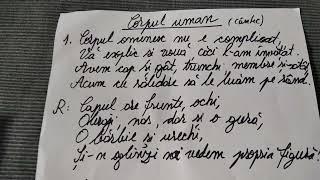 Corpul uman (cântec)
1. Corpul omenesc nu e complicat,
Vă explic și vouă căci l-am învățat.
Avem cap și gât, trunchi membre și-atât
Acum cu răbdare să le luăm pe rând.
R: Capul are frunte, ochi,
Obraji, nas, dar și o gură,
O bărbie și urechi,
Și-n oglinzi noi vedem propria figură!